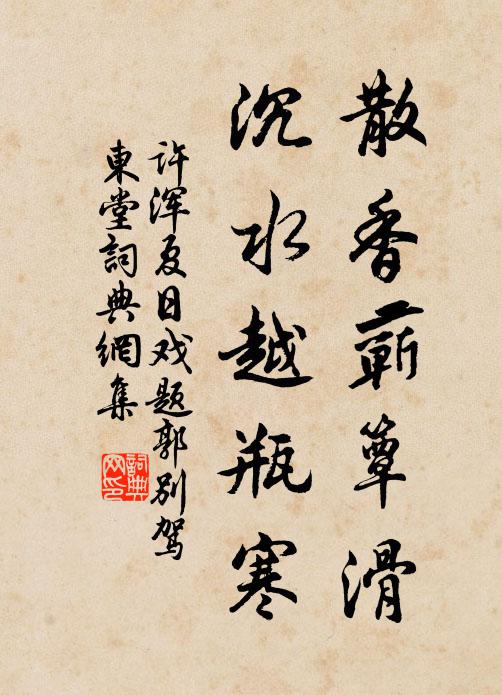 散香蕲簟滑
沉水越瓶寒
许浑夏日戏题郭别驾
東堂詞典網集
詞典网印